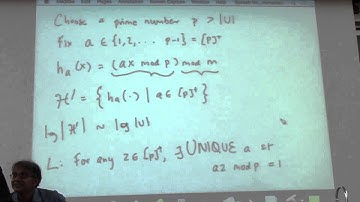 Choose a prime number p > |U|
Fix a ∈ {1, 2, ... p-1} = [p]⁺
hₐ(x) = (ax mod p) mod m
ℋ' = { hₐ(·) | a ∈ [p]⁺ }
log |ℋ'| ~ log |U|
L: For any z ∈ [p]⁺, ∃ UNIQUE a st
az mod p = 1